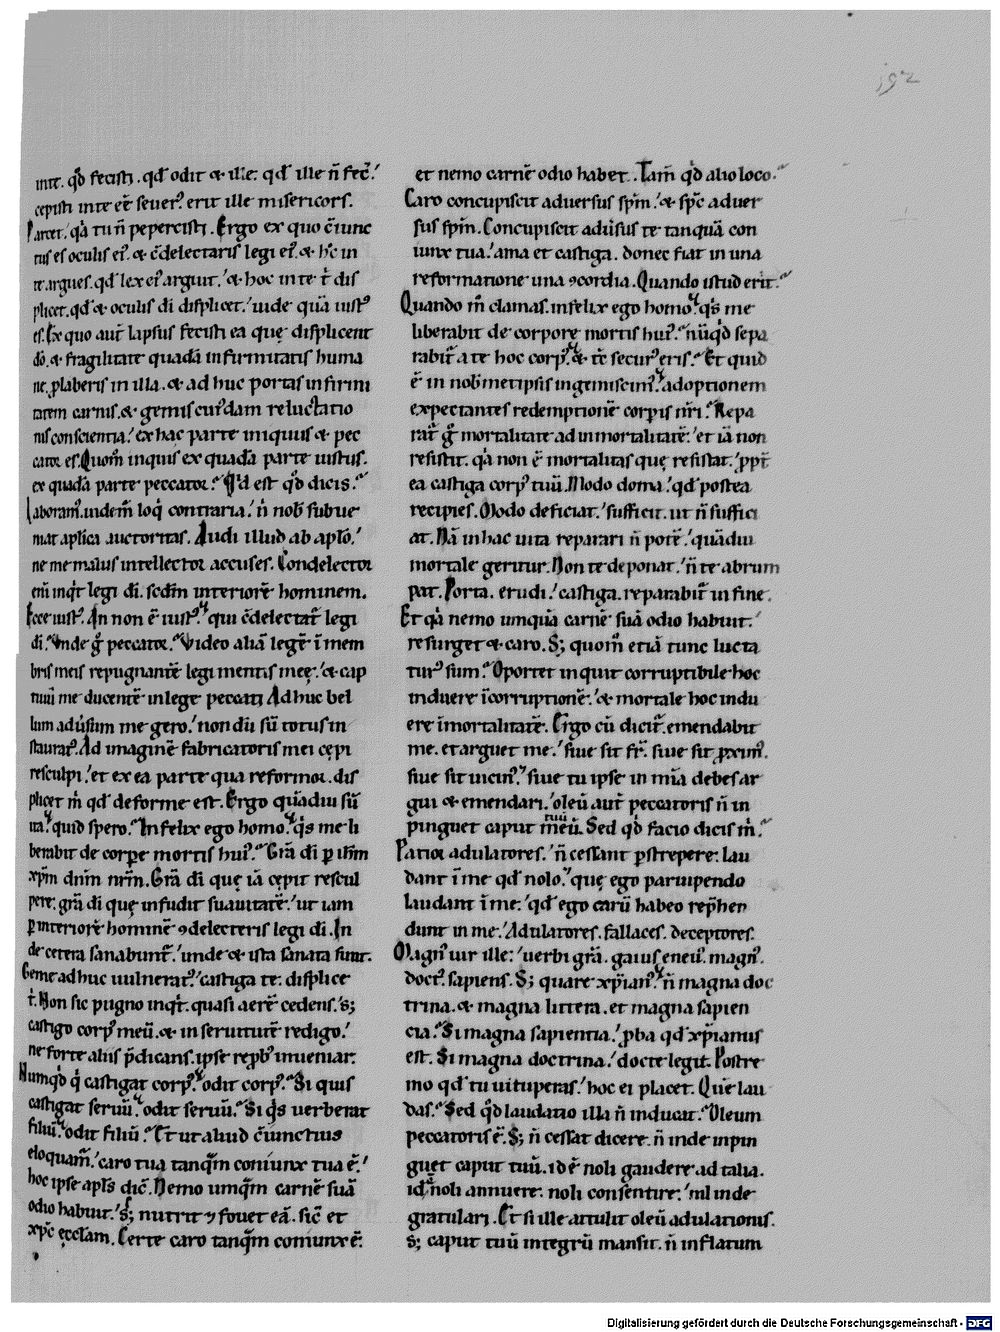 192
inte. qđ fecisti. qđ odit & ille: qđ ille n̄ fec̄.
cepisti inte eē seuer᷒. erit ille misericors.
Parcet. q̇a tu n̄ pepercisti. Ergo ex quo c̄iunc
tus es oculis ei᷒. & c̄delectaris legi ei᷒. & h̄c in
te argues. qđ lex ei᷒ arguit. & hoc in te t̄ dis
plicet. qđ & oculis di displicet. uide quā iust᷒
es. Ex quo aut̄ lapsus fecisti ea quę displicent
dō. & fragilitate quadā infirmitatis huma
nę. ꝓlaberis in illa. & ad huc portas infirmi
tatem carnis. & gemis cui᷒dam reluctatio
nis conscientia. ex hac parte iniquus & pec
cator es. Quom̄ inquis ex quadā parte iustus.
ex quadā parte peccator. Qd est qđ dicis.
Laboram᷒. uidem̄ loq̇ contraria. n̄ nob̄ subue
niat aplica auctoritas. Audi illud ab aplō.
ne me malus intellector accuses. Condelector
eni inq̇t legi di. scdm̄ interiorē hominem.
Ecce iust᷒. An non ē iust᷒. qui c̄delectat̄ legi
di. Vnde ḡ peccator. Video aliā legē ī mem
bris meis repugnantē legi mentis meę. & cap
tiuū me ducentē in lege peccati. Ad huc bel
lum aduersum me gero. non dū sū totus in
staurat᷒. Ad imaginē fabricatoris mei cępi
resculpi. et ex ea parte qua reformor. dis
plicet m̄ qđ deforme est. Ergo quādiu sū
ita. quid spero. Infelix ego homo. q̇s me li
berabit de corpe mortis hui᷒. Grā di ꝑ ihm
xpm dnm nrm. Grā di quę iā cepit rescul
pere. grā di quę infudit suauitatē. ut iam
ꝑ interiorē hominē ꝯdelecteris legi di. In
de cetera sanabunt̄. unde & ista sanata sunt.
Geme ad huc uulnerat᷒. castiga te. displice
t̄. Non sic pugno inq̇t. quasi aerē cedens. s;
castigo corp᷒ meū. & in seruitutē redigo.
ne forte aliis p̄dicans. ipse reprob᷒ inueniar.
Numqđ q̇ castigat corp᷒. odit corp᷒. Si quis
castigat seruū. odit seruū. Si q̇s uerberat
filiū. odit filiū. Et ut aliud c̄iunctius
eloquam̄. caro tua tanqm̄ coniunx tua ē.
hoc ipse apls dic̄. Nemo umqm̄ carnē suā
odio habuit. s; nutrit & fouet eā. sic̄ et
xpc ęcclam. Certe caro tanqm̄ coniunx ē.
et nemo carnē odio habet. Tam̄ qđ alio loco.
Caro concupiscit aduersus spm̄. & spc aduer
sus spm̄. Concupiscit adu̇sus te tanquā con
iunx tua. ama et castiga. donec fiat in una
reformatione una ꝯcordia. Quando istud erit.
Quando m̄ clamas. infelix ego homo. q̇s me
liberabit de corpore mortis hui᷒. nūqđ sepa
rabit̄ a te hoc corp᷒. & t̄ secur᷒ eris. Et quid
ē in nob metipsis ingemiscim᷒. adoptionem
expectantes redemptionē corpis nri. Repa
rat̄ ḡ mortalitate ad inmortalitatē. et iā non
resistit. q̇a non ē mortalitas quę resistat. ꝓpt̄
ea castiga corp᷒ tuū. Modo doma. qđ postea
recipies. Modo deficiat. sufficit. ut n̄ suffici
at. Nā in hac uita reparari n̄ potē. quādiu
mortale geritur. Non te deponat. n̄ te abrum
pat. Porta. erudi. castiga. reparabit̄ in fine.
Et q̇a nemo umquā carnē suā odio habuit.
resurget & caro. S; quom̄ etiā tunc lucta
tur᷒ sum. Oportet inquit corruptibile hoc
induere īcorruptionē. & mortale hoc indu
ere īmortalitatē. Ergo cū dicit̄. emendabit
me. et arguet me. siue sit fr̄. siue sit ꝓxim᷒.
siue sit uicin᷒. siue tu ipse in mīa debes ar
gui & emendari. oleū aut̄ peccatoris n̄ in
pinguet caput tuū meū. Sed qđ facio dicis m̄.
Patior adulatores. n̄ cessant ꝑstrepere. lau
dant ī me qđ nolo. quę ego paruipendo
laudant ī me. qđ ego carū habeo rep̄hen
dunt in me. Adulatores. fallaces. deceptores.
Magn᷒ uir ille. uerbi grā. gaius eneu᷒. magn᷒.
doct᷒. sapiens. S; quare xpian᷒. n̄ magna doc
trina. & magna littera. et magna sapien
cia. Si magna sapientia. ꝓba qđ xpianus
est. Si magna doctrina. docte legit. Postre
mo qđ tu uituperas. hoc ei placet. Quē lau
das. Sed qđ laudatio illa n̄ inducat. Oleum
peccatoris ē. S; n̄ cessat dicere. n̄ inde inpin
guet caput tuū. id ē noli gaudere ad talia.
id ē noli annuere. noli consentire. nil inde
gratulari. Et si ille attulit oleū adulationis.
s; caput tuū integrū mansit. n̄ inflatum
Digitalisierung gefördert durch die Deutsche Forschungsgemeinschaft - DFG